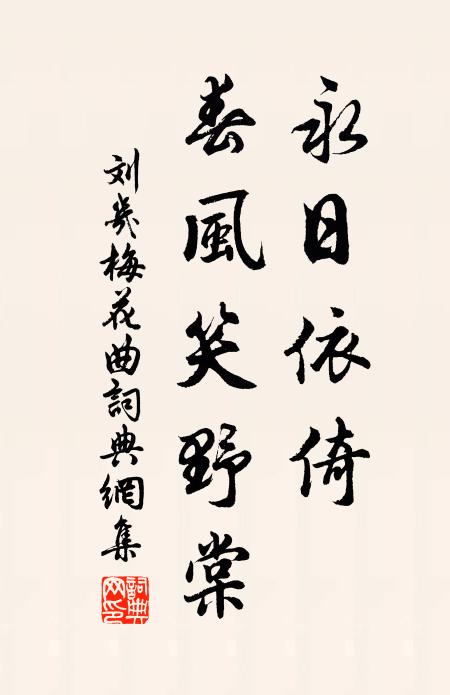 永日依倚
春風笑野棠
刘几梅花曲詞典網集
詞典网印